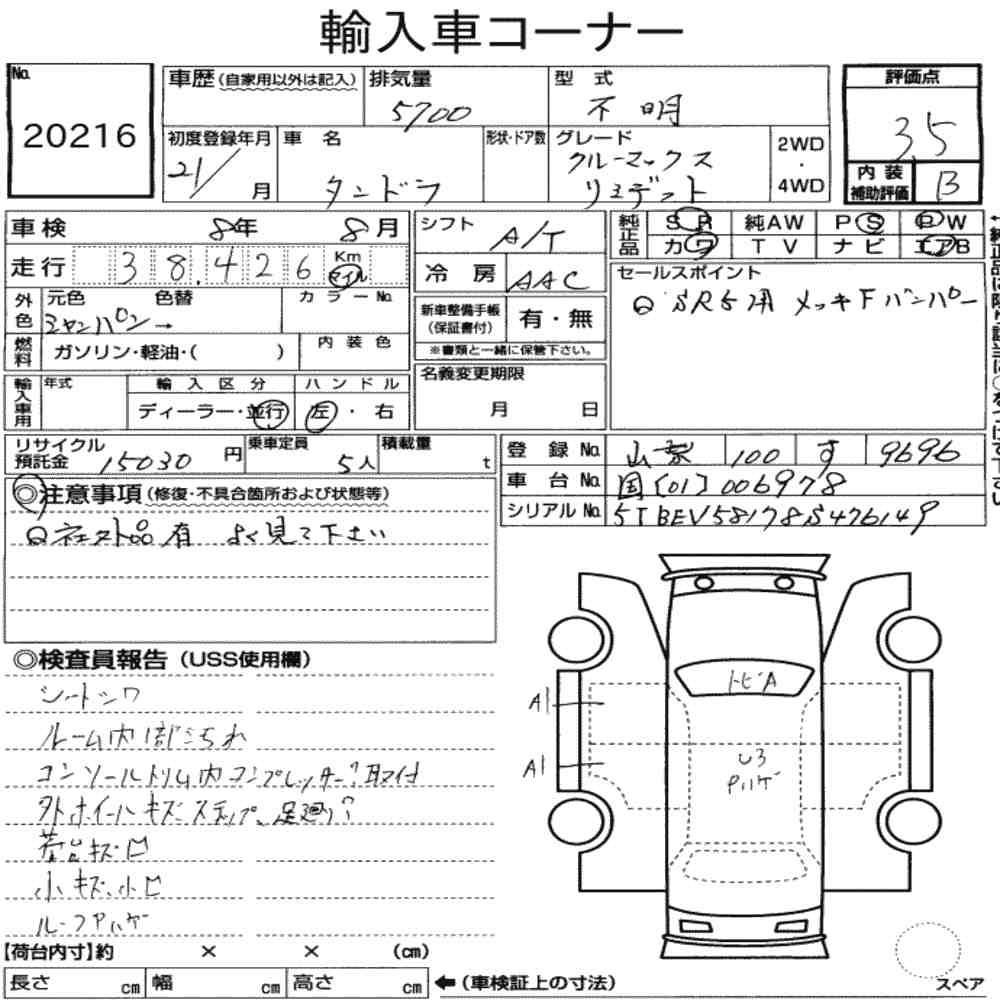 輸入車コーナー
No.
20216
車歴(自家用以外は記入)
排気量
5700
型 式
不明
評価点
3.5
初度登録年月
21/ 月
車 名
タンドラ
形状・ドア数
グレード
クルーマックス
リミデット
2WD
・
4WD
内 装
補助評価
B
車検 8年 8月
走行 38,426 Km マイル
シフト A/T
冷 房 AAC
純正品
SR 純AW PS PW
カワ TV ナビ エアB
セールスポイント
Q SR5用 メッキFバンパー
外色
元色 色替
シャンパン→
カラーNo.
燃料
ガソリン・軽油・( )
内 装 色
新車整備手帳
(保証書付)
有・無
※書類と一緒に保管下さい。
名義変更期限
月 日
輸入車用
年式
輸 入 区 分
ディーラー・並行
ハ ン ド ル
左・右
リサイクル
預託金 15030 円
乗車定員
5人
積載量
t
登 録 No. 100 す 9696
車 台 No. 国[01]006978
シリアル No. 5TBEV58178S476149
◎注意事項(修復・不具合箇所および状態等)
品有 よく見て下さい
◎検査員報告(USS使用欄)
シートシワ
ルーム内
コンソールトリム内コンプレッサー?取付
外ホイールキズ ステップ、足廻り?
荷台キズ凹
小キズ、小凹
ルーフPハゲ
トビA
A1
A1
U3
Pハゲ
【荷台内寸】約 × × (cm)
長さ cm 幅 cm 高さ cm
←(車検証上の寸法)
スペア